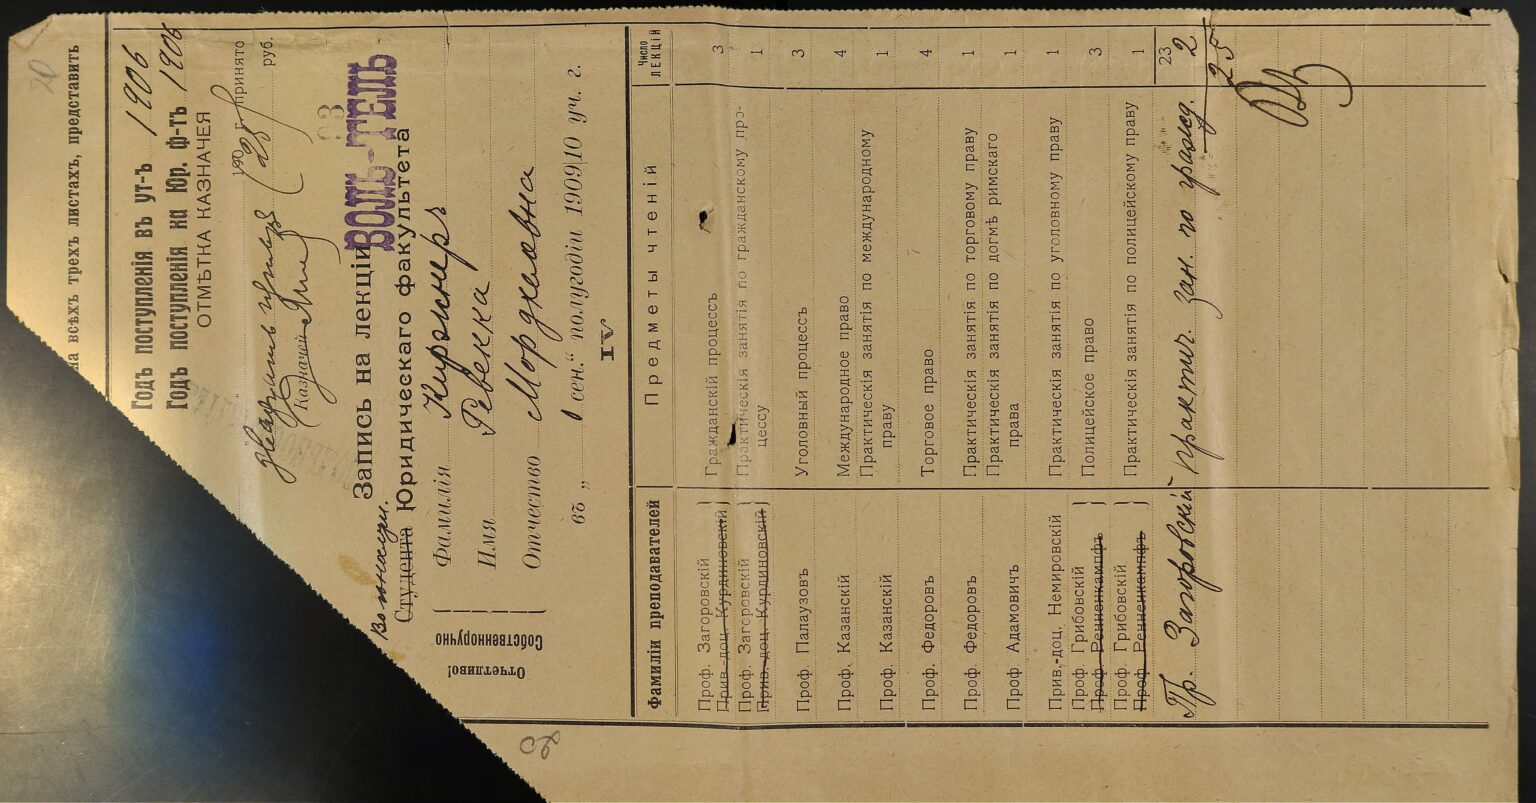 на всѣхъ трехъ листахъ, представить
Годъ поступленія въ ут-ъ 1906
Годъ поступленія на Юр. ф-тъ 1906
ОТМѢТКА КАЗНАЧЕЯ
190 г. принято
25 руб.
Казначей
Запись на лекціи
ВОЛЬ-ТЕЛЬ
Вольнослуш.
Студента Юридическаго факультета
Отчетливо!
Собственноручно
Фамилія Киржнеръ
Имя Ревекка
Отчество Мордховна
въ „1 сен.“ полугодіи 1909|10 уч. г.
IV
Фамиліи преподавателей Предметы чтеній Число лекцій
Проф. Загоровскій Гражданскій процессъ 3
Прив.-доц. Курдиновскій
Проф. Загоровскій Практическія занятія по гражданскому про- 1
Прив.-доц. Курдиновскій цессу
Проф. Палаузовъ Уголовный процессъ 3
Проф. Казанскій Международное право 4
Проф. Казанскій Практическія занятія по международному 1
праву
Проф. Федоровъ Торговое право 4
Проф. Федоровъ Практическія занятія по торговому праву 1
Проф. Адамовичъ Практическія занятія по догмѣ римскаго 1
права
Прив.-доц. Немировскій Практическія занятія по уголовному праву 1
Проф. Грибовскій Полицейское право 3
Проф. Ренненкампфъ
Проф. Грибовскій Практическія занятія по полицейскому праву 1
Проф. Ренненкампфъ
23
Пр. Загоровскій практич. зан. по гражд. 2
25